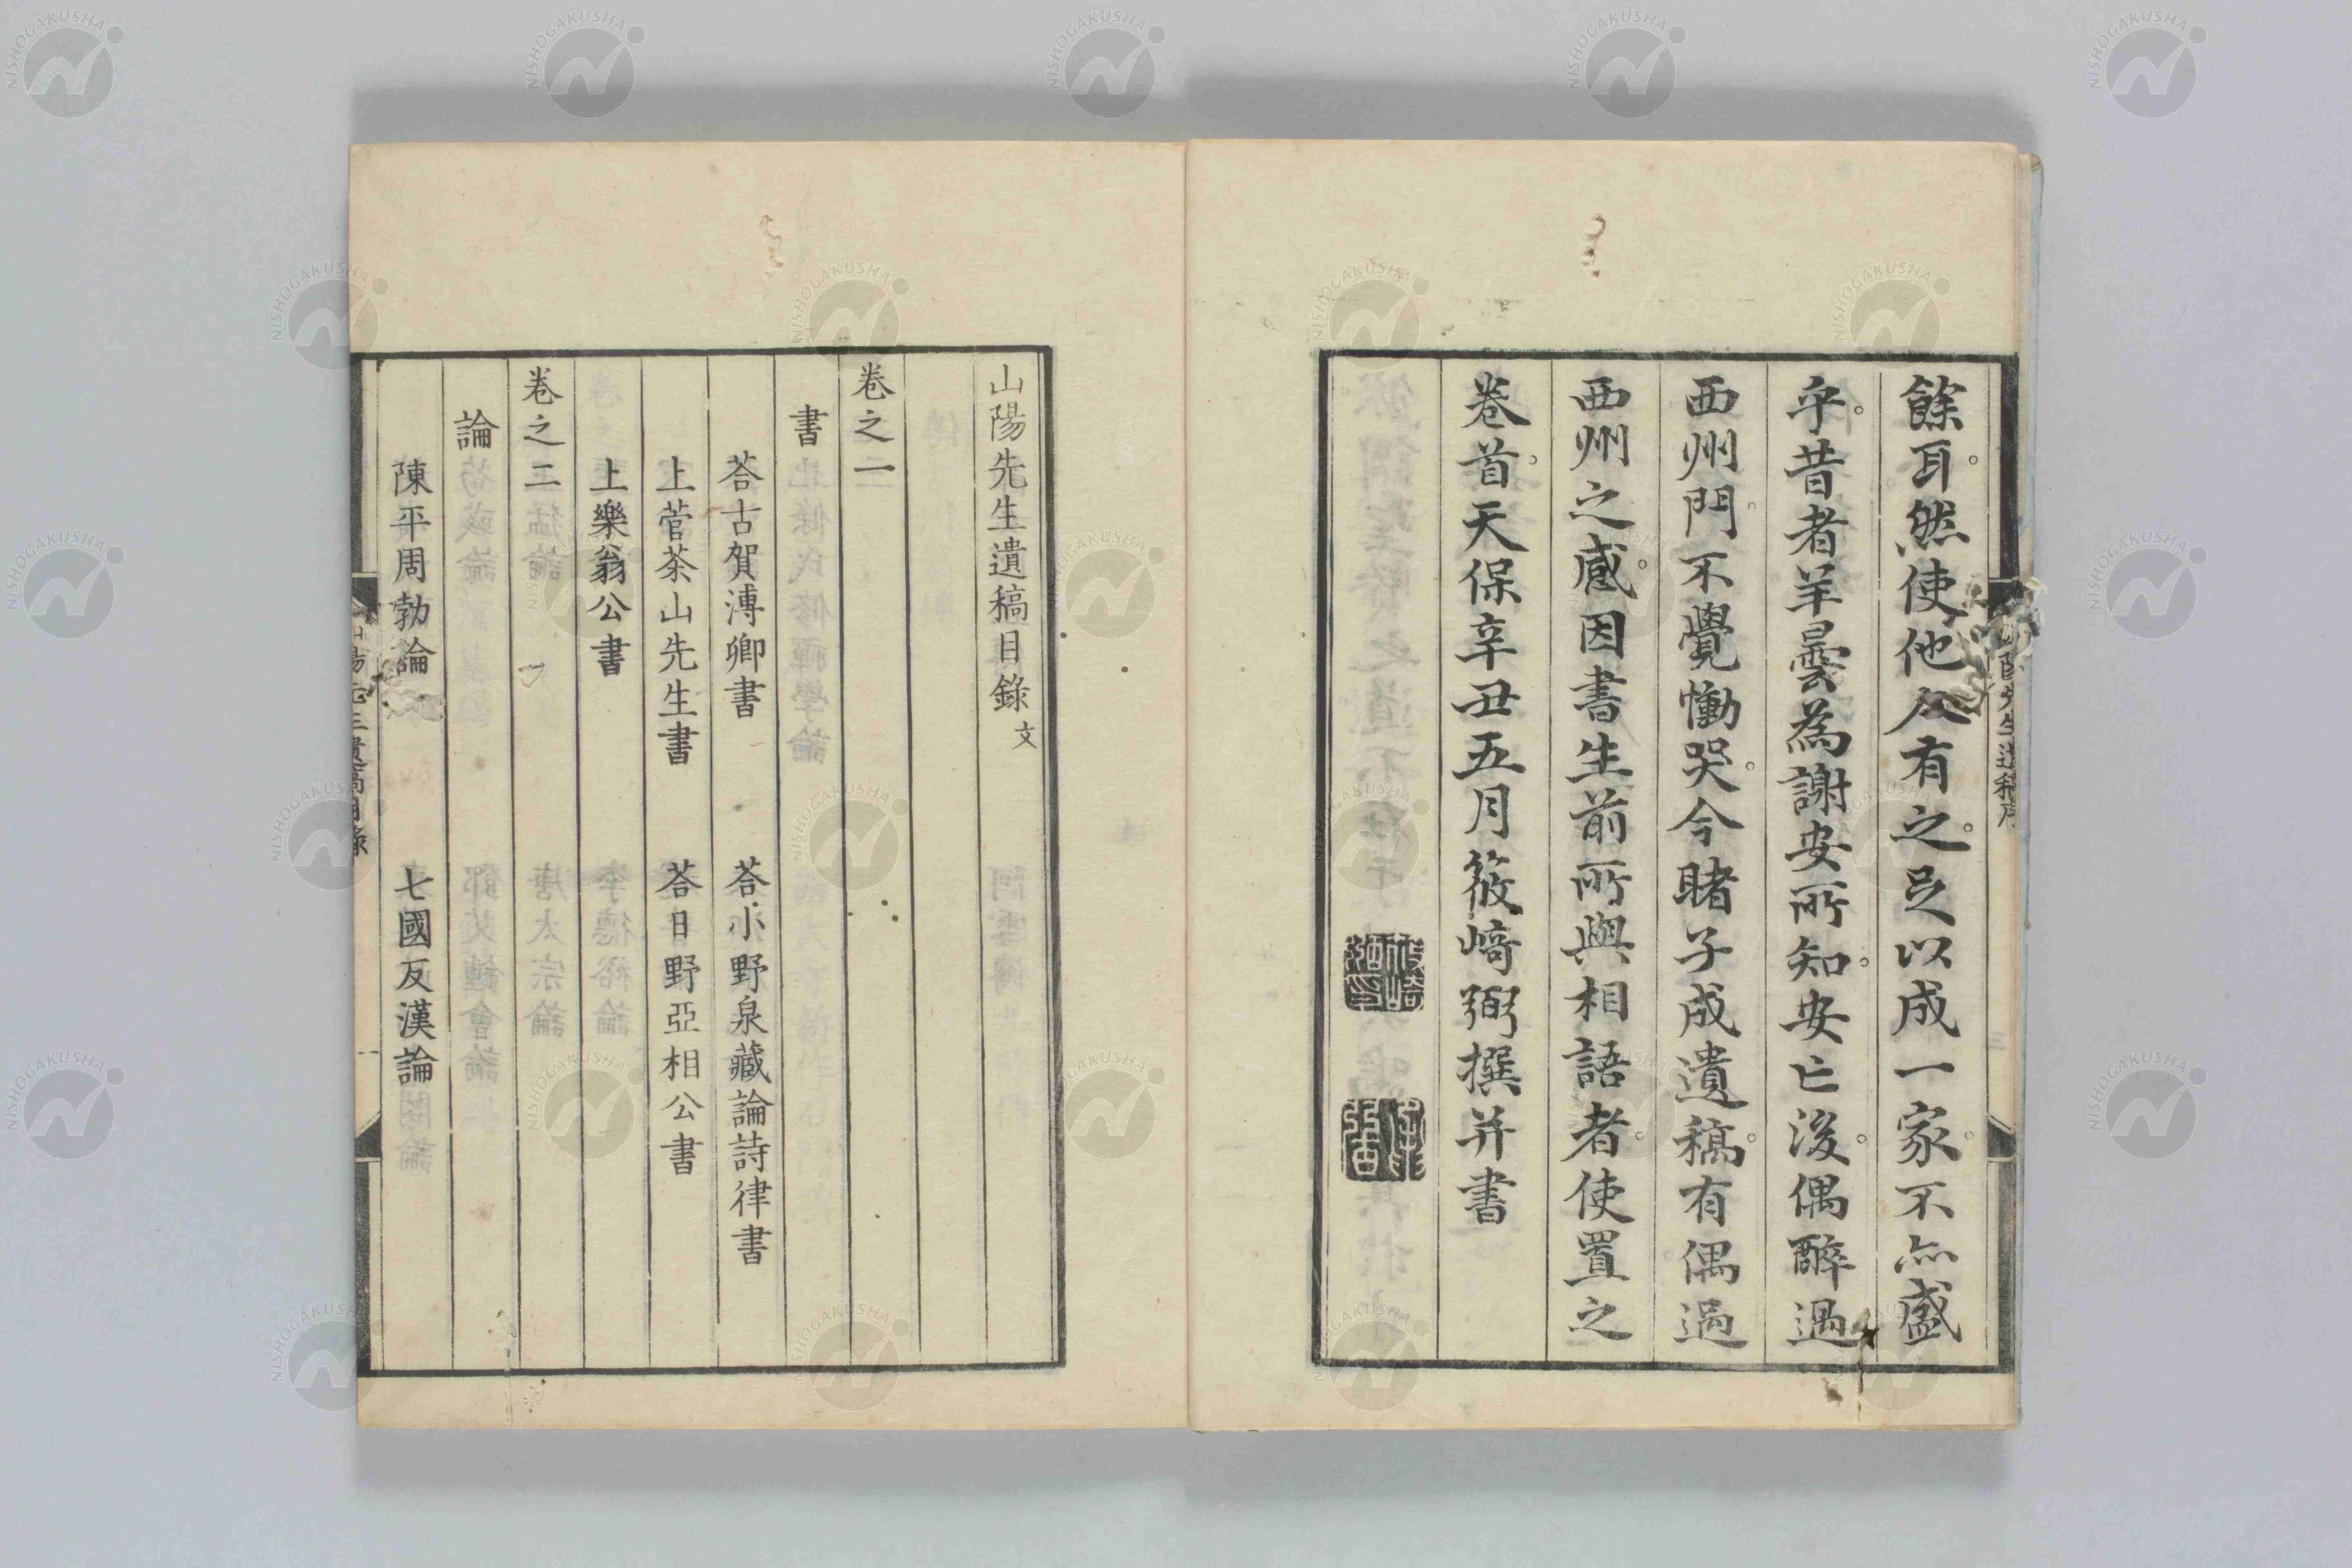 餘耳。然使他人有之。足以成一家。不亦盛
乎。昔者羊曇為謝安所知。安亡後。偶醉過
西州門。不覺慟哭。今睹子成遺稿。有偶過
西州之感。因書生前所與相語者。使置之
卷首。天保辛丑五月筱崎弼撰并書
山陽先生遺稿目錄 文
卷之一
書
荅古賀溥卿書 荅小野泉藏論詩律書
上菅茶山先生書 荅日野亞相公書
上樂翁公書
卷之二
論
陳平周勃論 七國反漢論
NISHOGAKUSHA